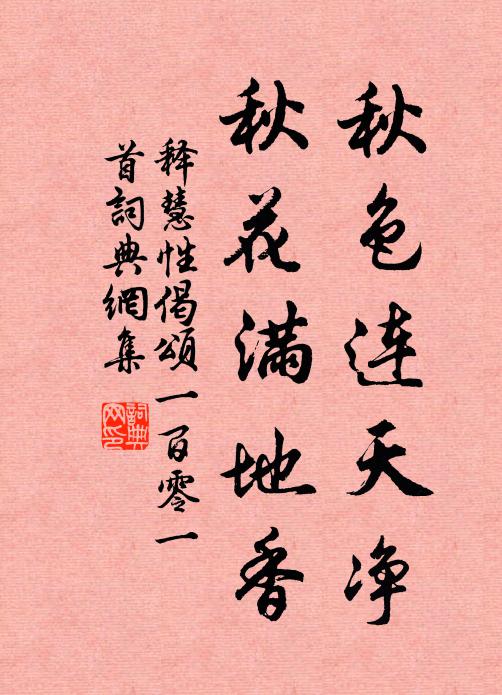 秋色连天净
秋花满地香
释慧性偈頌一百零一
首詞典網集
詞典
网印